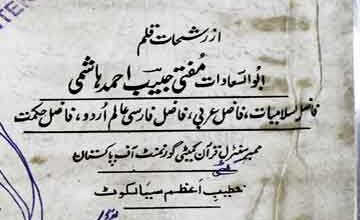 از رشحات قلم
ابوالسعادات مفتی حبیب احمد ہاشمی
فاضل اسلامیات، فاضل عربی، فاضل فارسی عالم اردو، فاضل حکمت
ممبر سنٹرل قرآن کمیٹی گورنمنٹ آف پاکستان
خطیب اعظم سیالکوٹ